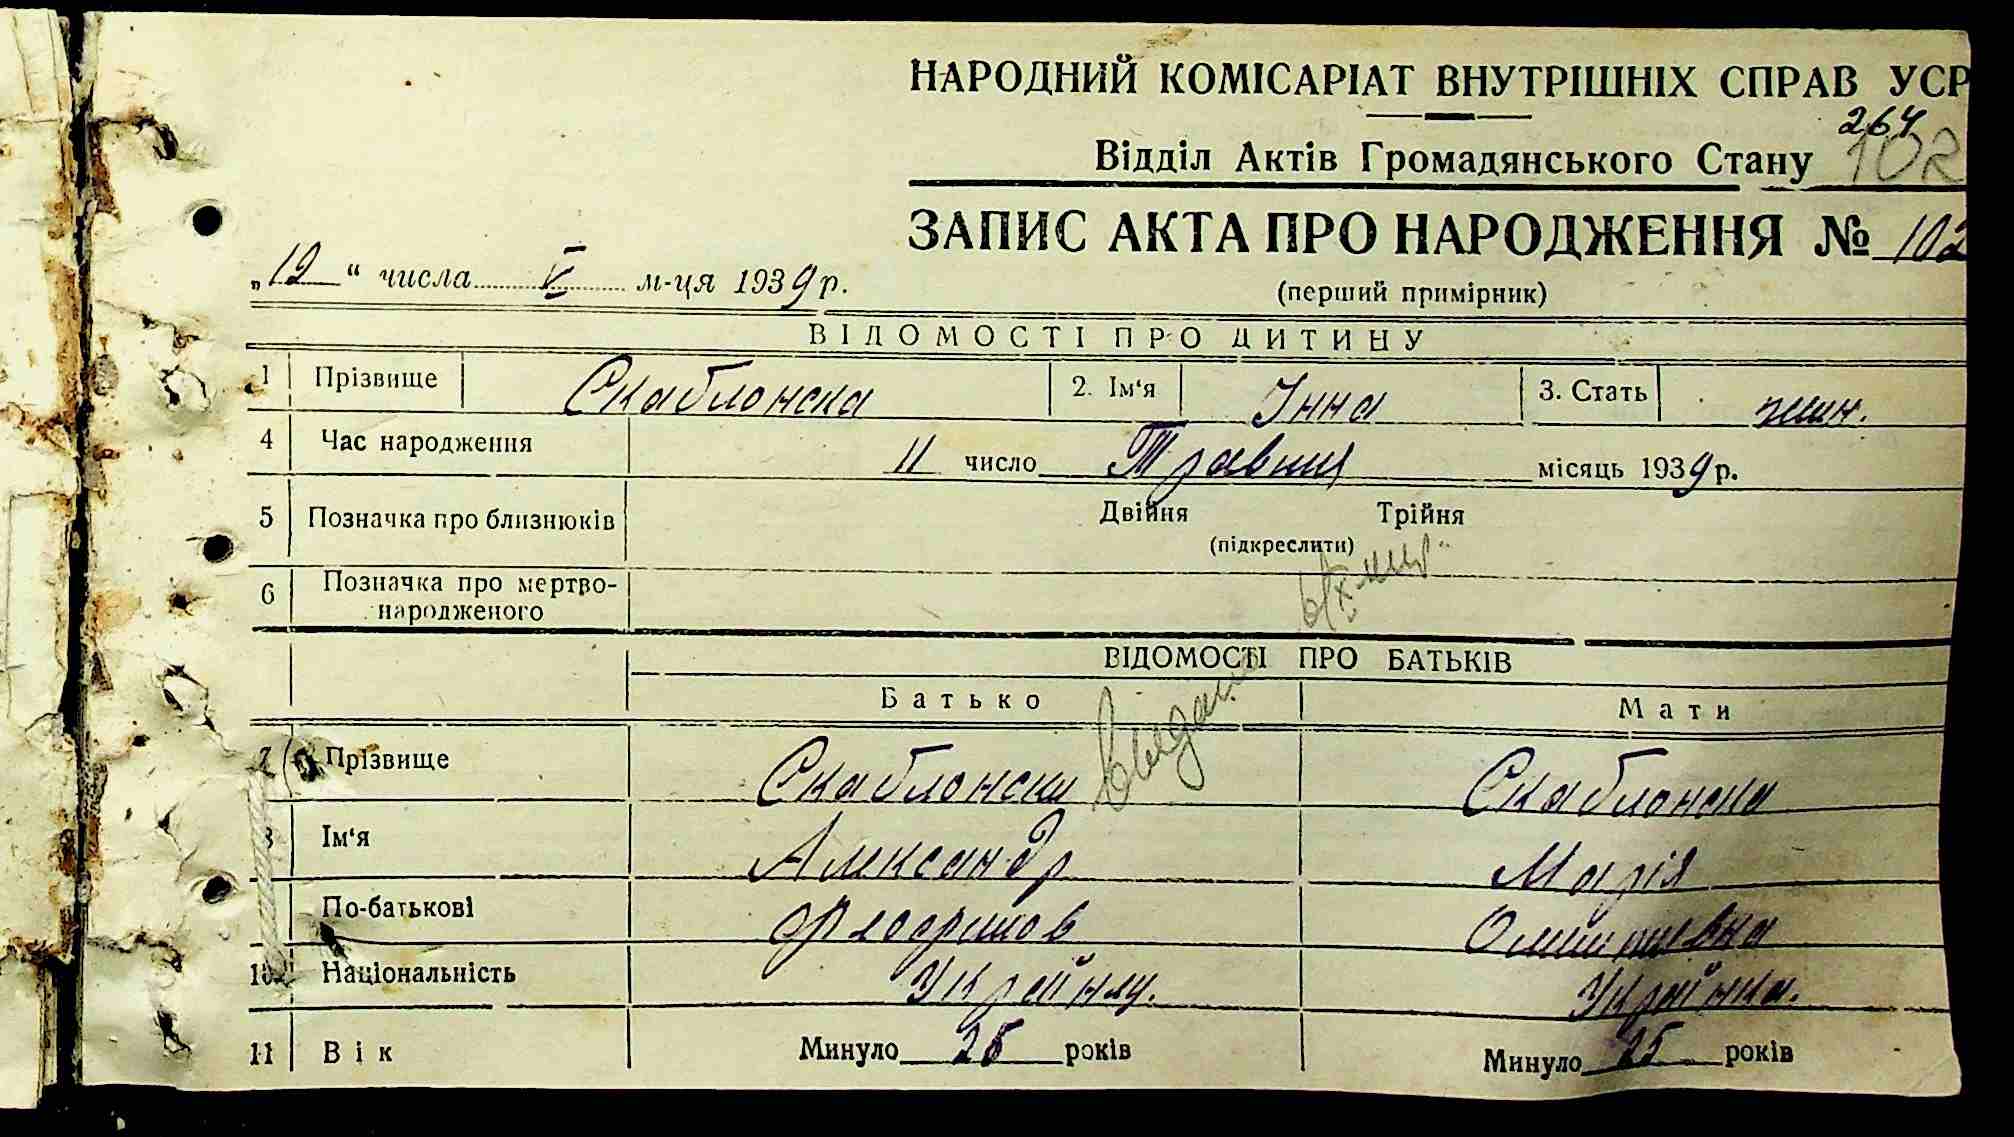 НАРОДНИЙ КОМІСАРІАТ ВНУТРІШНІХ СПРАВ УСР
264
Відділ Актів Громадянського Стану 102
ЗАПИС АКТА ПРО НАРОДЖЕННЯ № 102
„12“ числа V м-ця 1939 р.
(перший примірник)
ВІДОМОСТІ ПРО ДИТИНУ
1 Прізвище Скаблонска 2. Ім'я Інна 3. Стать жин.
4 Час народження 11 число Травня місяць 1939 р.
5 Позначка про близнюків Двійня Трійня
(підкреслити)
6 Позначка про мертво-
народженого
ВІДОМОСТІ ПРО БАТЬКІВ
Батько Мати
7 Прізвище Скаблонски Скаблонска
8 Ім'я Александр Марія
По-батькові
10 Національність Українец. Українка.
11 Вік Минуло 25 років Минуло 25 років